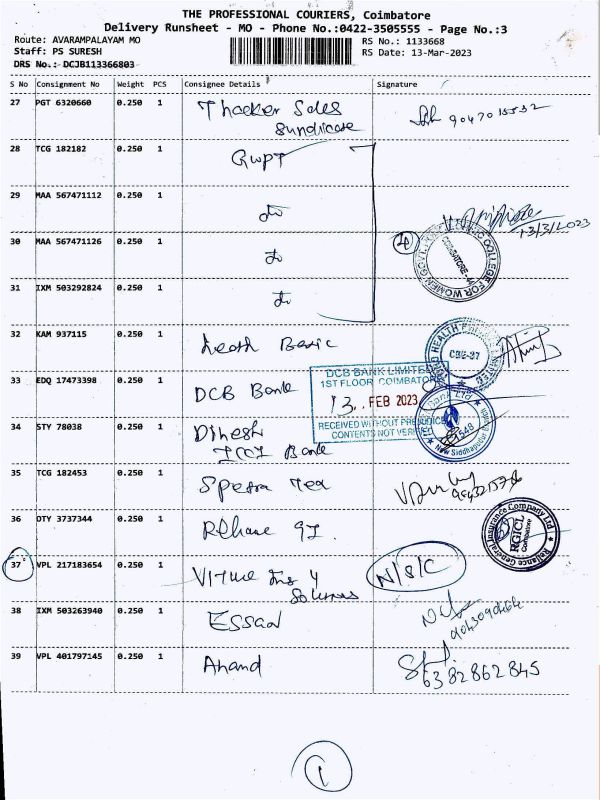 THE PROFESSIONAL COURIERS, Coimbatore
Delivery Runsheet - MO - Phone No.:0422-3505555 - Page No.:3
Route: AVARAMPALAYAM MO
RS No.: 1133668
Staff: PS SURESH
RS Date: 13-Mar-2023
DRS No.:- DCJB113366803
S No Consignment No Weight PCS Consignee Details Signature
27 PGT 6320660 0.250 1 Thacker Sales
9047015532
28 TCG 182182 0.250 1 GWPT
29 MAA 567471112 0.250 1 do
13/3/2023
30 MAA 567471126 0.250 1 do
31 IXM 503292824 0.250 1 do
32 KAM 937115 0.250 1
CBE-37
33 EDQ 17473398 0.250 1 DCB Bank
DCB BANK LIMITED
1ST FLOOR COIMBATORE
13 FEB 2023
RECEIVED WITHOUT PREJUDICE
CONTENTS NOT VERIFIED
34 STY 78038 0.250 1 Dinesh
ICCI Bank
35 TCG 182453 0.250 1
36 OTY 3737344 0.250 1
Reliance General Insurance Company Ltd
RGICL
Coimbatore
37 VPL 217183654 0.250 1 Virtue
N/S/C
38 IXM 503263940 0.250 1 ESSAD
39 VPL 401797145 0.250 1 Anand
6382862845
1